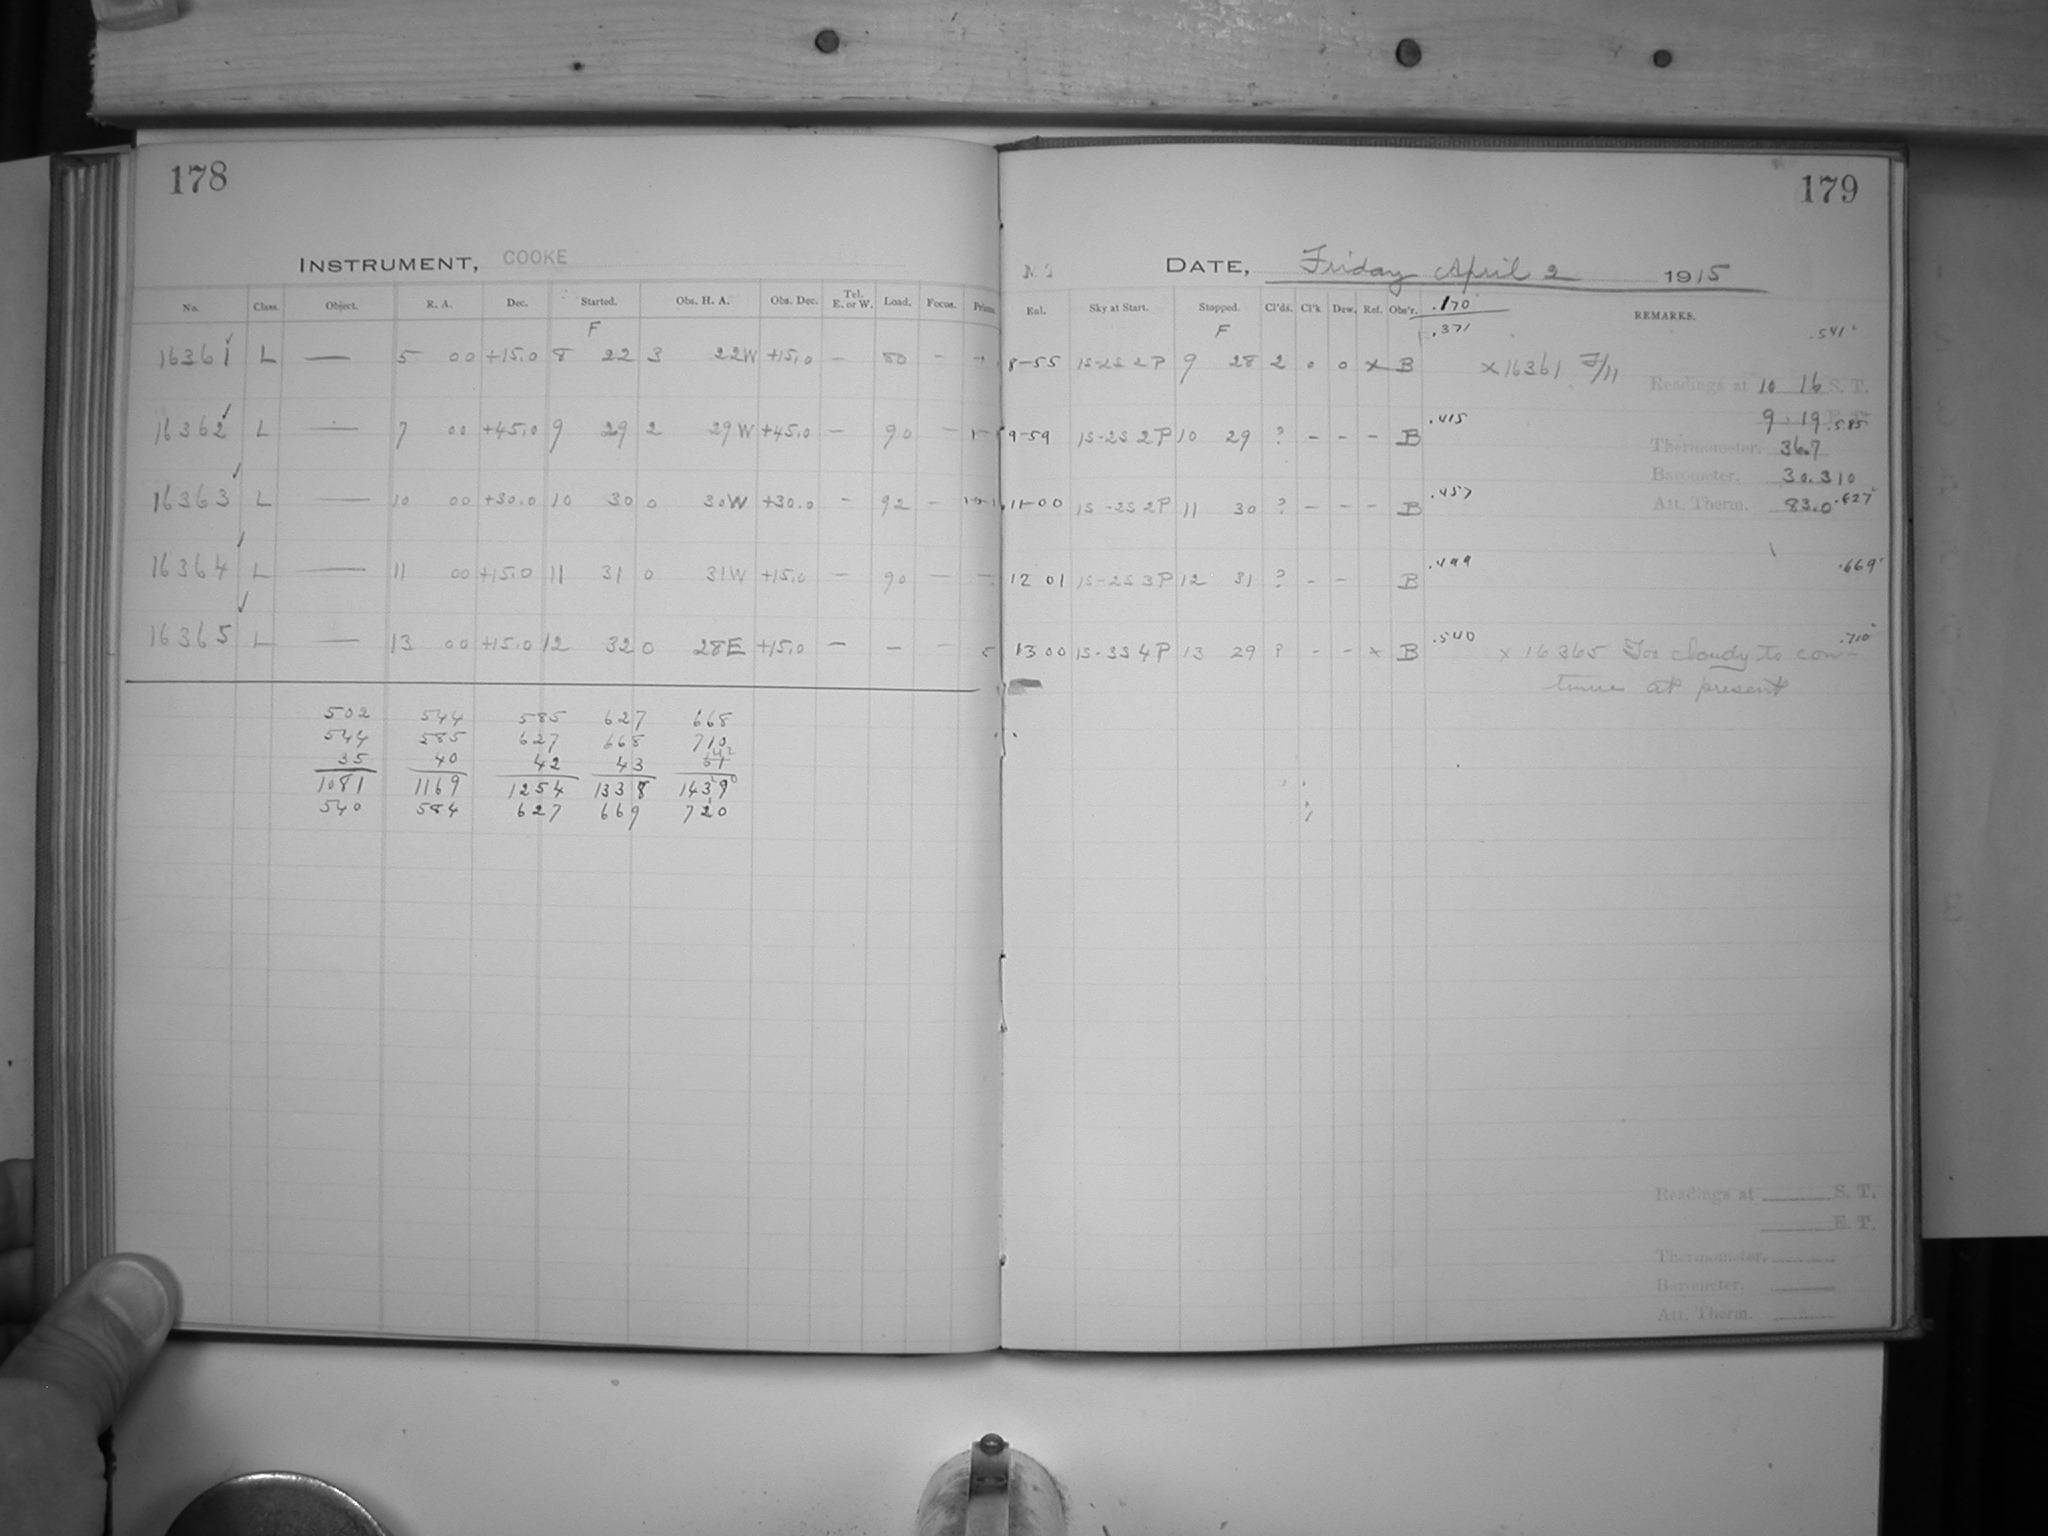 178
INSTRUMENT, COOKE
No. Class. Object. R. A. Dec. Started. Obs. H. A. Obs. Dec. Tel. E. or W. Load. Focus.
F
16361 L — 5 00 +15.0 8 22 3 22W +15.0 — 80 -
16362 L — 7 00 +45.0 9 29 2 29W +45.0 — 90 —
16363 L — 10 00 +30.0 10 30 0 30W +30.0 - 92 -
16364 L — 11 00 +15.0 11 31 0 31W +15.0 — 90 — —
16365 L — 13 00 +15.0 12 32 0 28E +15.0 — — —
502 544 585 627 668
544 585 627 668 710
35 40 42 43
1081 1169 1254 1338 1439
540 584 627 669 720
179
DATE, Friday April 2 1915
Enl. Sky at Start. Stopped. Cl'ds. Cl'k Dew. Ref. Obs'r. .170 REMARKS.
F .371 .541
8-55 1S-2S 2P 9 28 2 0 0 x B x 16361 F/11
Readings at 10 16 S. T.
9-59 1S-2S 2P 10 29 ? - - - B .415 9.19 E. T. .585
Thermometer. 36.7
Barometer. 30.310
11-00 1S-2S 2P 11 30 ? - - - B .457 Att. Therm. 83.0 .627
12 01 1S-2S 3P 12 31 ? - - B .499 .669
13 00 1S-3S 4P 13 29 ? - - x B .540 x 16365 Too cloudy to con- .710
tinue at present
Readings at S. T.
E. T.
Thermometer.
Barometer.
Att. Therm.